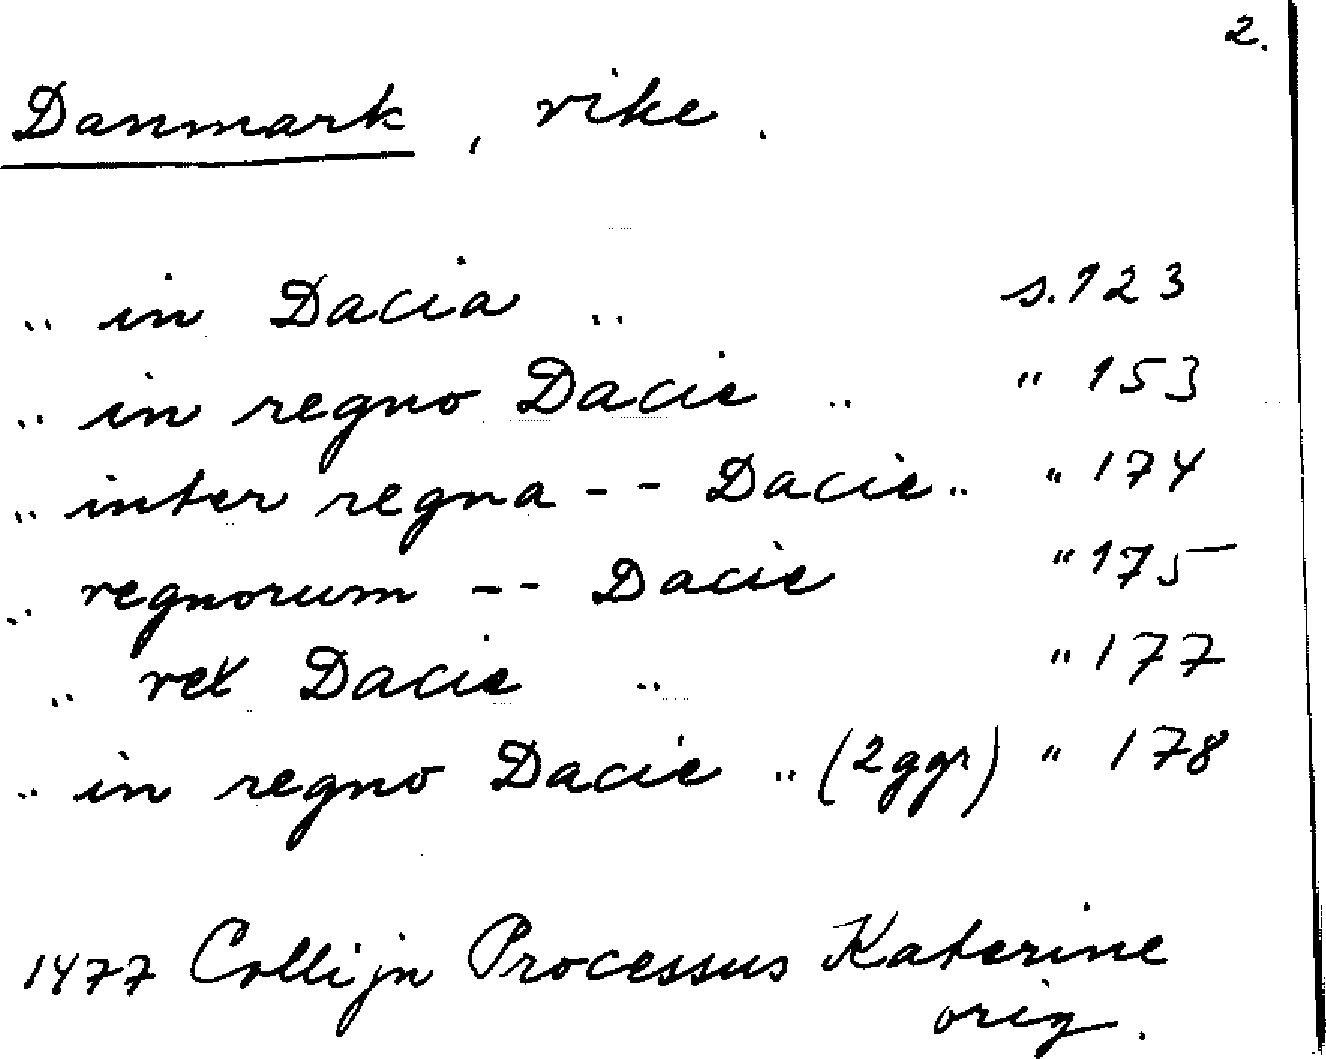 2.
Danmark, rike.
.. in Dacia .. s. 123
.. in regno Dacie .. " 153
.. inter regna - - Dacie .. " 174
.. regnorum - - Dacie " 175
.. rex Dacie .. " 177
.. in regno Dacie .. (2ggr) " 178
1477 Collijn Processus Katerine
orig.